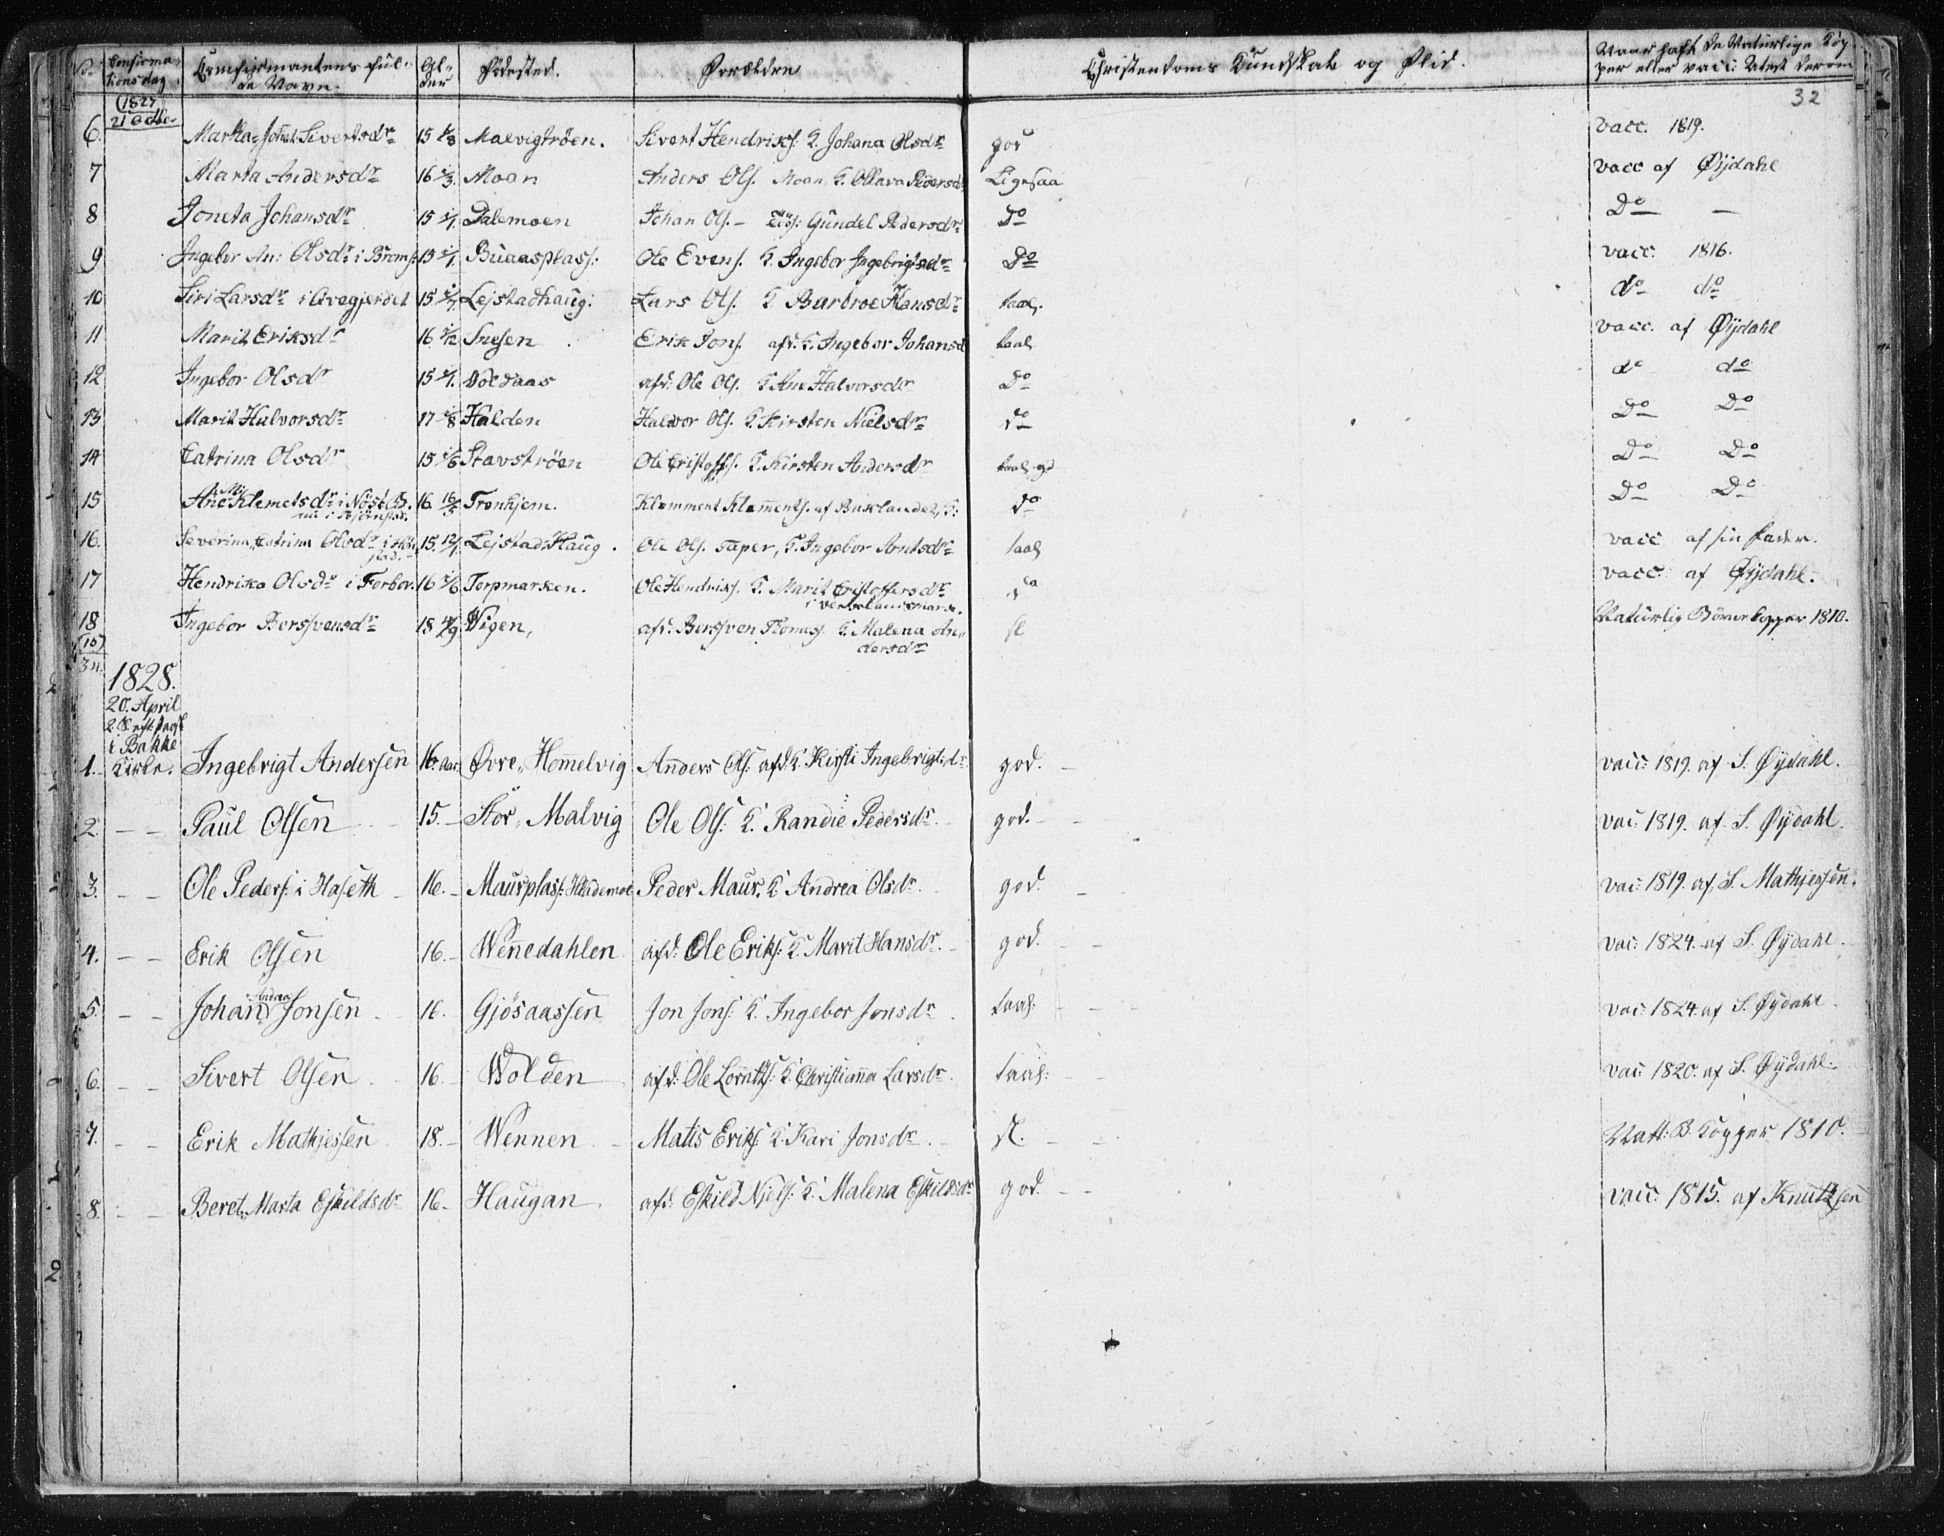 No. Confirma- Confirmantens ful- Al- Födested. Forældre Christendoms Kundskab og Flid. Naar haft de Naturlige Kop-
tionsdag de Navn. der per eller vacc: Attest derom
(1827 32
21 Octbr
6. Martha Sivertsdr 15 Malvigtrøen. Sivert Hendriks: K. Johana Olsdr god vacc. 1819.
7 Marta Andersdr 16 Moan Anders Ols. Moan K. Ollava Pedersd Ligesaa vacc af Øijdahl
8 Joneta Johansdr 15 Dalemoen Johan Ols. – Gundel Pedersdr Do Do —
9 Ingebor An: Olsdr i 15 Buaasplass: Ole Evens. K. Ingebor Ingebrigtsdr Do vacc. 1816.
10 Siri Larsdr i 15 Lejstadhaug: Lars Ols. K Barbroe Hansdr taal. do do
11 Marit Eriksdr 16 Snesen Erik Jons. afd: K. Ingebor Johansd taal vacc. af Øijdahl
12 Ingebor Olsdr 15 Voldaas afd: Ole Ols. K Ane Halvorsdr Do do do
13 Marit Halvorsdr 17 Halden Halvor Ols. K. Kirsten Nielsdr do Do Do
14 Catrina Olsdr 15 Stavstrøen Ole Cristoffs. K. Kirsten Andersdr taal. gd Do Do
15 Ane Klemetsdr i 16. Tronhjem. Klemment Klemments. af K: do Do Do
16. Severina Catrina Olsdr i 15. Lejstad Haug. Ole Ols. K. Ingebor Arntsdr taal vacc af sin fader.
17 Hendrika Olsdr i Forbor. 16 Torpmarken. Ole Hendriks. K. Marit Cristoffersdr do vacc. af Øijdahl.
18 Ingebor Berssvensdr 18 Wigen, afd: Berssven Tomes. K. Malena An- sl Naturlig Börnekopper 1810.
dersdr
1828.
20. April
2. S. eft. Paask
i Bakke
1. Kirke. Ingebrigt Andersen 16. Aar Øvre, Homelvig Anders Ols: afd: K. Kirsti Ingebrigtsdr god. — vacc: 1819. af S. Øijdahl.
2. — — Paul Olsen 15. — Stor, Malvig Ole Ols: K. Randie Pedersdr. god. — — vac: 1819. af S. Øijdahl.
3. — — Ole Peders: i Haseth 16. — Maursplass: Peder Maur, K. Andrea Olsdr. god. — vac: 1819. af S. Mathjessen.
4. — — Erik Olsen 16. — Wennedahlen afd: Ole Eriks: K. Marit Hansdr. god. — — vac: 1824. af S. Øijdahl.
Andrea
5. — — Johan Jonsen 16. Gjøsaassen Jon Jons: K. Ingebor Jonsdr. taal: — — vac: 1824 af S. Øijdahl.
6. — — Sivert Olsen 16. Wolden afd: Ole Lorntz: K. Christianna Larsdr. taal: — — vac: 1820. af S. Øijdahl.
7. — — Erik Mathjessen 18. — Wennen Matis Eriks: K. Kari Jonsdr. — sl. — — Natl: B. Kopper 1810.
8. — — Beret, Marta Eskildsdr 16. Haugan afd: Eskild Niels: K. Malena Eskildsdr god. — — vacc: 1815. af Knutzen